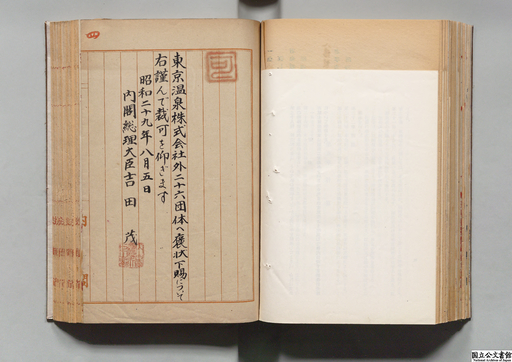 四
可
東京温泉株式会社外二十六団体へ褒状下賜について
右謹んで裁可を仰ぎます
昭和二十九年八月五日
内閣総理大臣吉田茂
国立公文書館
National Archives of Japan